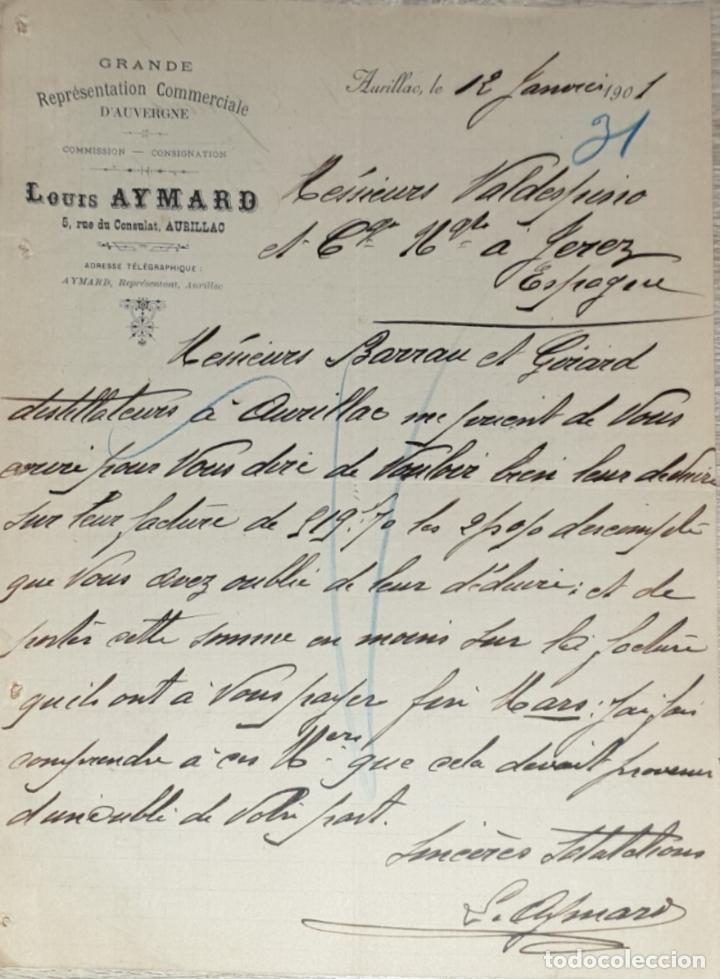 GRANDE
Représentation Commerciale
D'AUVERGNE
COMMISSION — CONSIGNATION
LOUIS AYMARD
5, rue du Consulat, AURILLAC
ADRESSE TÉLÉGRAPHIQUE :
AYMARD, Représentant, Aurillac
Aurillac, le 12 Janvier 1901
31
Messieurs Valdespino
et Cie à Jerez
Espagne
Messieurs Barrau et Girard
distillateurs à Aurillac me prient de Vous
écrire pour Vous dire de Vouloir bien leur déduire
sur leur facture de 519.70 les 2 p% d'escompte
que Vous avez oublié de leur déduire ; et de
porter cette somme en moins sur la facture
qu'ils ont à Vous payer fin Mars ; j'ai fait
comprendre à ces Mers que cela devait provenir
d'un oubli de Votre part.
Sincères Salutations
L. Aymard
todocoleccion